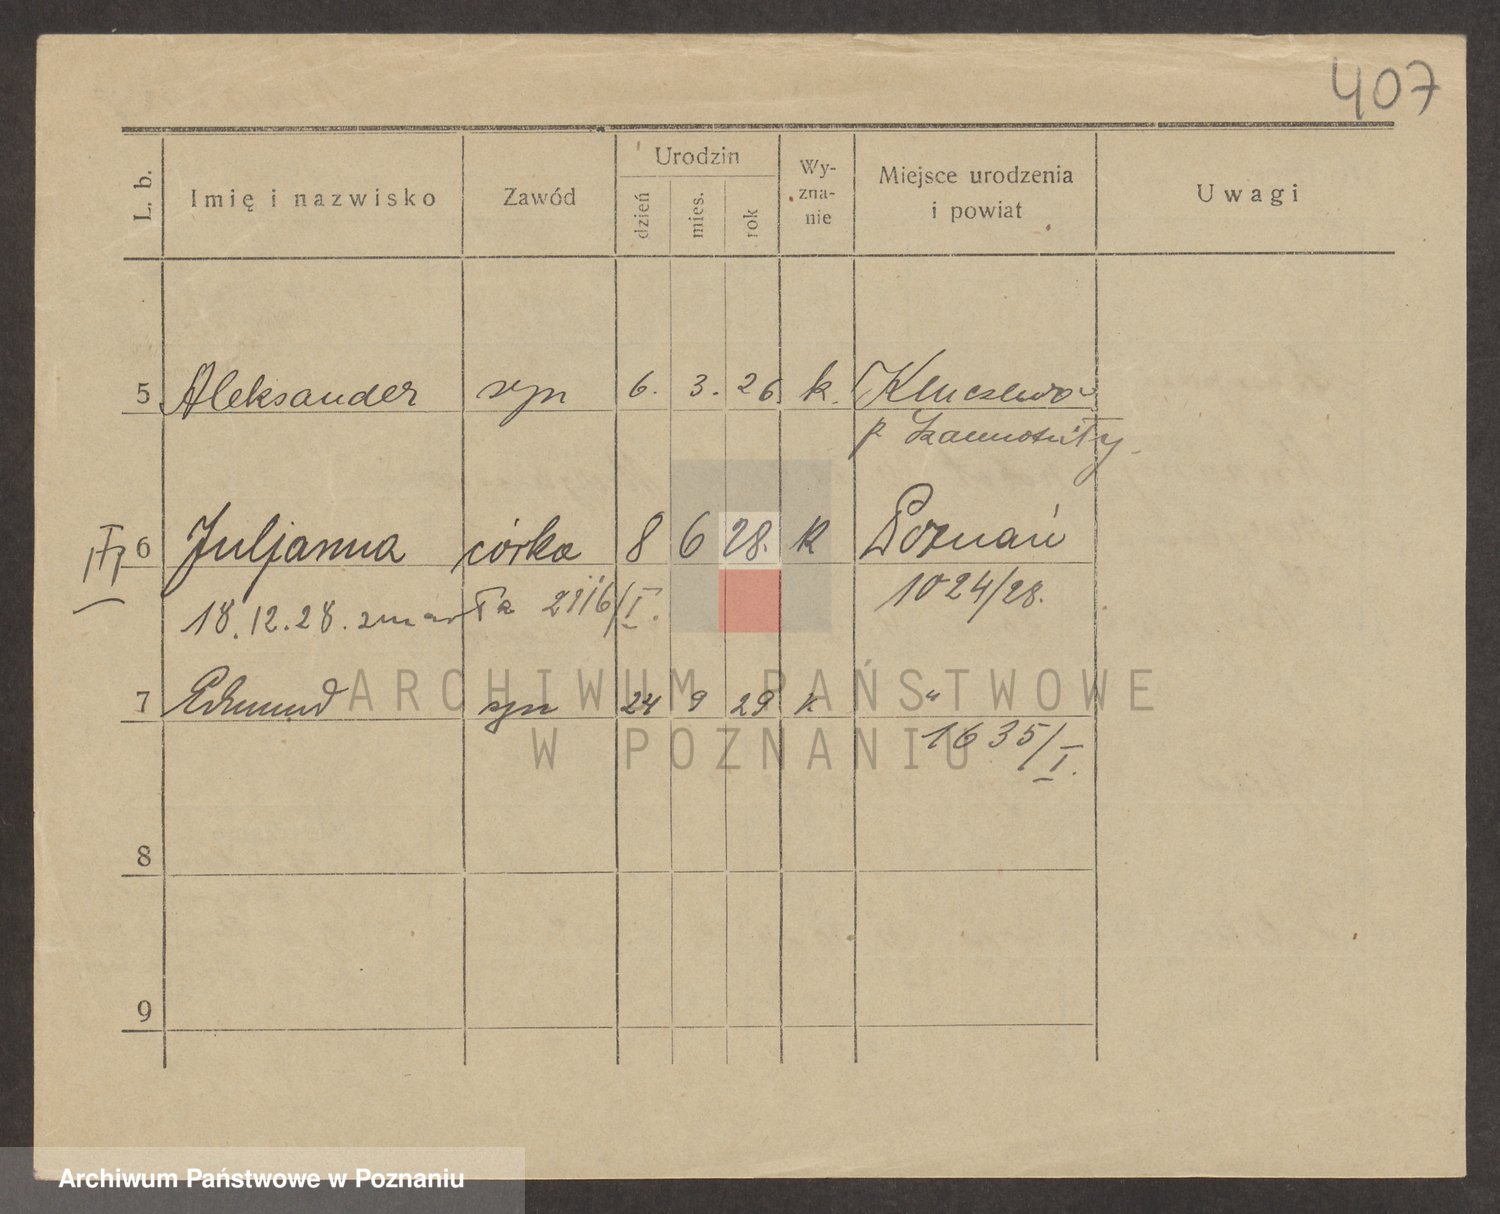 407
L. b.
Imię i nazwisko
Zawód
Urodzin
dzień
mies.
rok
Wy-
zna-
nie
Miejsce urodzenia
i powiat
Uwagi
5 Aleksander syn 6. 3. 26 k. Kluczewo
p
6 Juljanna córka 8 6 28. k Poznań
18.12.28. zmarła /I. 1024/28.
7 Edmund syn 24 9 29 k "
1635/I.
8
9
ARCHIWUM PAŃSTWOWE
W POZNANIU
Archiwum Państwowe w Poznaniu